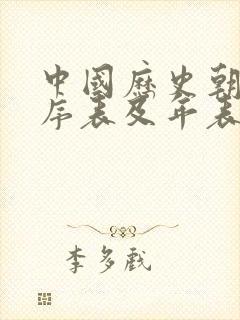 中國歷史朝
序表及年表
李多戲